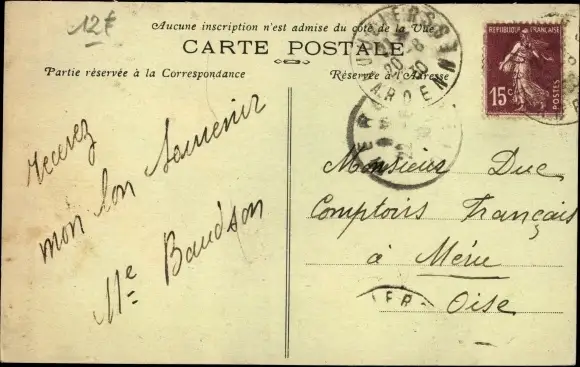 12€
Aucune inscription n'est admise du côté de la Vue
CARTE POSTALE
Partie réservée à la Correspondance
Réservée à l'Adresse
REPUBLIQUE FRANÇAISE
15c
POSTES
ARDENNES
recevez
mon bon souvenir
Mle Baudson
Monsieur Duc
Comptoirs Français
à Méru
Oise